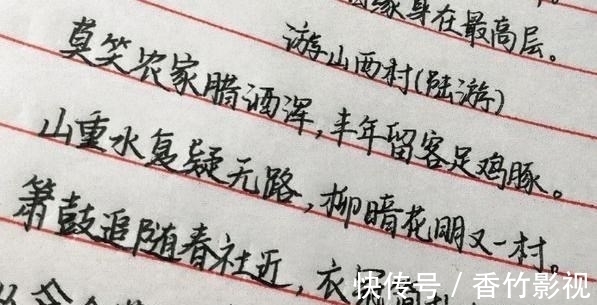 身在最高层。
游山西村(陆游)
莫笑农家腊酒浑,丰年留客足鸡豚。
山重水复疑无路,柳暗花明又一村。
箫鼓追随春社近,衣
快传号/香竹影视